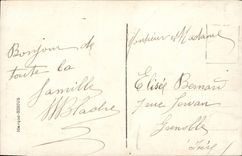 Bonjour de
toute la
famille
Monsieur et Madame
Elisée Bernard
7 rue
Grenoble
(Isère)